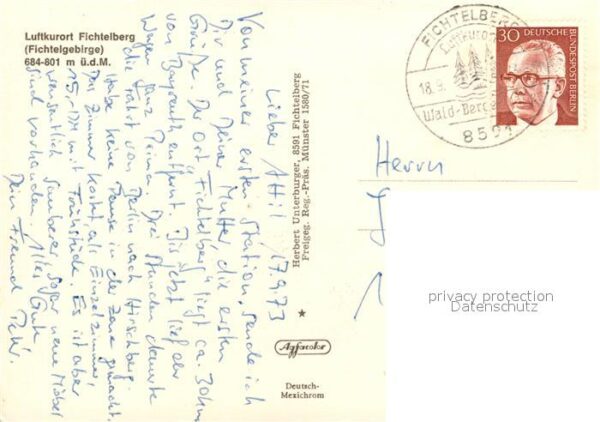 Luftkurort Fichtelberg
(Fichtelgebirge)
684-801 m ü.d.M.
Lieber Attil 17.9.73
Von meiner ersten Station sende ich
Dir und Deiner Mutter die ersten
Grüße. Der Ort Fichtelberg liegt ca. 30 km
von Bayreuth entfernt. Bis jetzt lief der
Wagen ganz prima. Drei Stunden dauerte
die Fahrt von Berlin nach Hirschberg.
Habe keine Pause in der Zone gemacht.
Das Zimmer kostet, als Einzelzimmer,
15,- DM mit Frühstück. Es ist aber
wesentlich sauberer, sogar neue Möbel
sind vorhanden. Alles Gute
Dein Freund
Herbert Unterburger, 8591 Fichtelberg
Freigeg. Reg.-Präs. Münster 1580/71
Agfacolor
Deutsch-
Mexichrom
FICHTELBERG
Luftkurort
18.9.
Wald-Berge
8591
30 DEUTSCHE
BUNDESPOST BERLIN
Herrn
privacy protection
Datenschutz